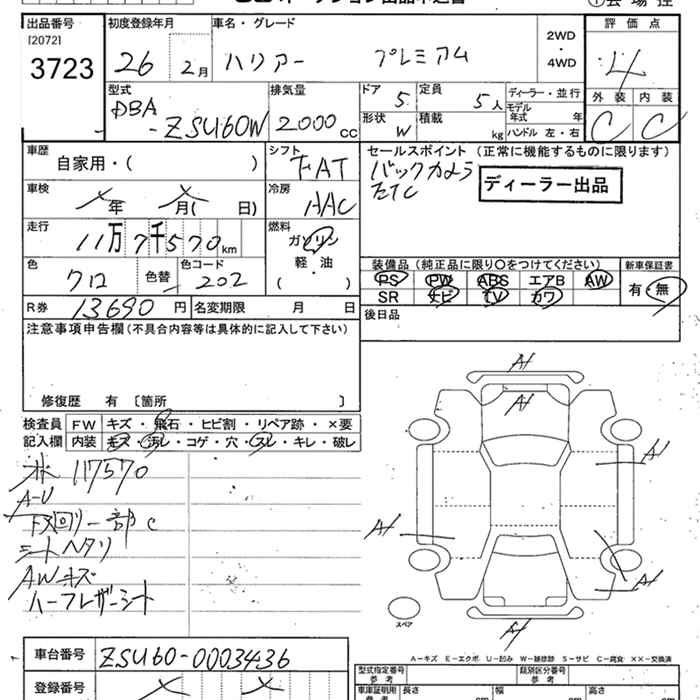 出品番号 初度登録年月 車名・グレード 評価点
[2072]
3723 26 2月 ハリアー プレミアム 2WD・4WD 4
型式 排気量 ドア 定員 ディーラー・並行 外装 内装
DBA
-ZSU60W 2000cc 5 5人 モデル年式 年 C C
形状 W 積載 kg ハンドル 左・右
車歴 シフト セールスポイント (正常に機能するものに限ります)
自家用・( ) FAT バックカメラ
ETC ディーラー出品
車検 冷房
メ年 メ月( 日) AAC
走行 燃料
11万7千570km ガソリン
軽・油
( )
色 色替 色コード 装備品 (純正品に限り○をつけてください) 新車保証書
クロ 202 PS PW ABS エアB AW 有・無
SR ナビ TV カワ
R券 13690円 名変期限 月 日 後日品
注意事項申告欄(不具合内容等は具体的に記入して下さい)
修復歴 有 [箇所 ]
検査員 FW キズ・飛石・ヒビ割・リペア跡・×要
記入欄 内装 キズ・汚レ・コゲ・穴・スレ・キレ・破レ
A1
A1
A1
A1
A1
A1
スペア
117570
A-U
下回リ一部C
シートヘタリ
AWキズ
ハーフレザーシート
A-キズ E-エクボ U-凹み W-補修跡 S-サビ C-腐食 ××-交換済
車台番号 ZSU60-0003436
型式指定番号 参考 類別区分番号 参考
登録番号
車庫証明用 参考 長さ cm 幅 cm 高さ cm